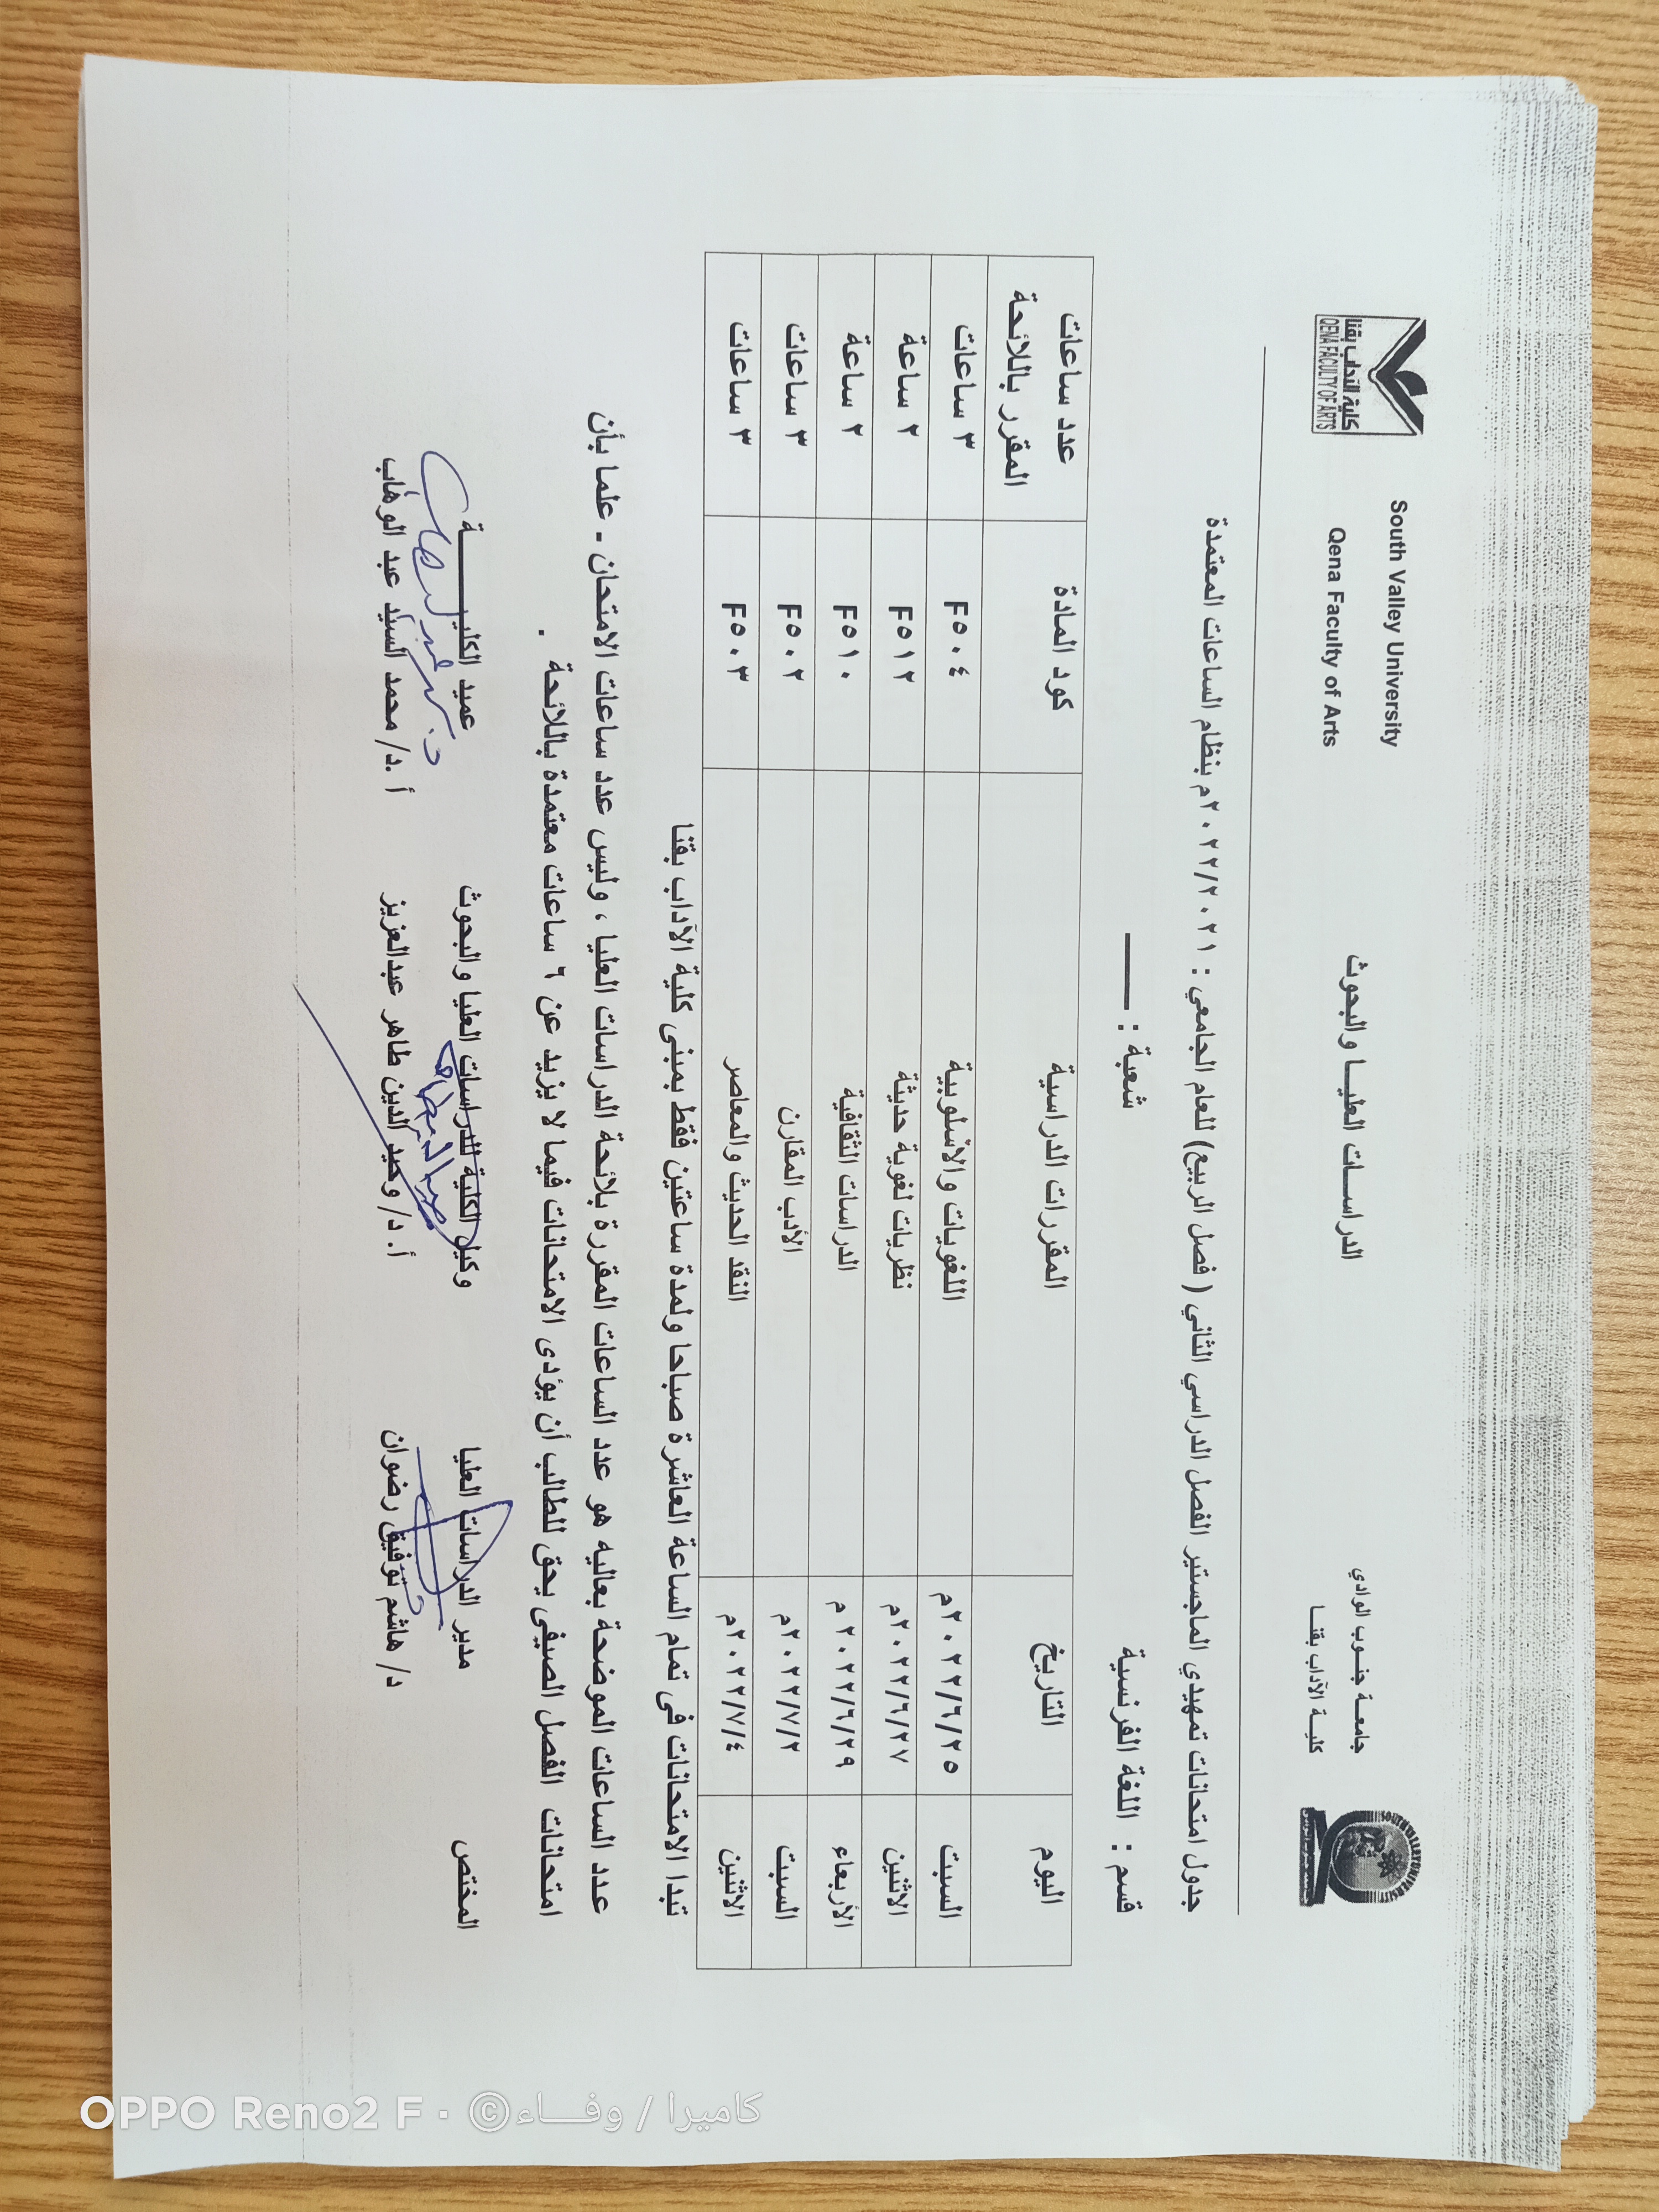 جامعة جنوب الوادي
كلية الآداب بقنا
الدراسات العليا والبحوث
South Valley University
Qena Faculty of Arts
كلية الآداب بقنا
QENA FACULTY OF ARTS
جدول امتحانات تمهيدي الماجستير الفصل الدراسي الثاني ( فصل الربيع) للعام الجامعي : ٢٠٢٢/٢٠٢١م بنظام الساعات المعتمدة
قسم : اللغة الفرنسية شعبة : ـــــــــ
اليوم التاريخ المقررات الدراسية كود المادة عدد ساعات المقرر باللائحة
السبت ٢٠٢٢/٦/٢٥م اللغويات والأسلوبية F٥٠٤ ٣ ساعات
الاثنين ٢٠٢٢/٦/٢٧م نظريات لغوية حديثة F٥١٢ ٢ ساعة
الأربعاء ٢٠٢٢/٦/٢٩م الدراسات الثقافية F٥١٠ ٢ ساعة
السبت ٢٠٢٢/٧/٢م الأدب المقارن F٥٠٢ ٣ ساعات
الاثنين ٢٠٢٢/٧/٤م النقد الحديث والمعاصر F٥٠٣ ٣ ساعات
تبدا الامتحانات فى تمام الساعة العاشرة صباحا ولمدة ساعتين فقط بمبنى كلية الآداب بقنا
عدد الساعات الموضحة بعاليه هو عدد الساعات المقررة بلائحة الدراسات العليا ، وليس عدد ساعات الامتحان - علما بأن
امتحانات الفصل الصيفى يحق للطالب أن يؤدى الامتحانات فيما لا يزيد عن ٦ ساعات معتمدة باللائحة .
المختص مدير الدراسات العليا وكيل الكلية للدراسات العليا والبحوث عميد الكليـــــــــة
د/ هاشم توفيق رضوان أ.د/ وحيد الدين طاهر عبدالعزيز أ.د/ محمد السيد عبد الوهاب
OPPO Reno2 F · ©كاميرا / وفــــاء